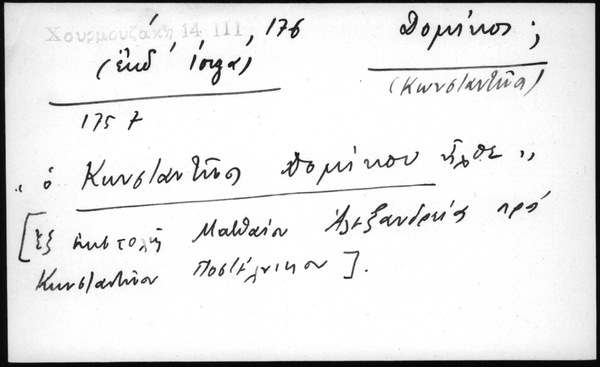 Χουρμουζάκη 14 III, 176
Δομίνικος;
(ἐκδ
(Κωνσταντῖνος)
1757
„ὁ Κωνσταντῖνος ἦρθε„
[ἐξ ἐπιστολῆς Ματθαίου Ἀλεξανδρείας πρὸς
Κωνσταντῖνον Ποστέλνικον].